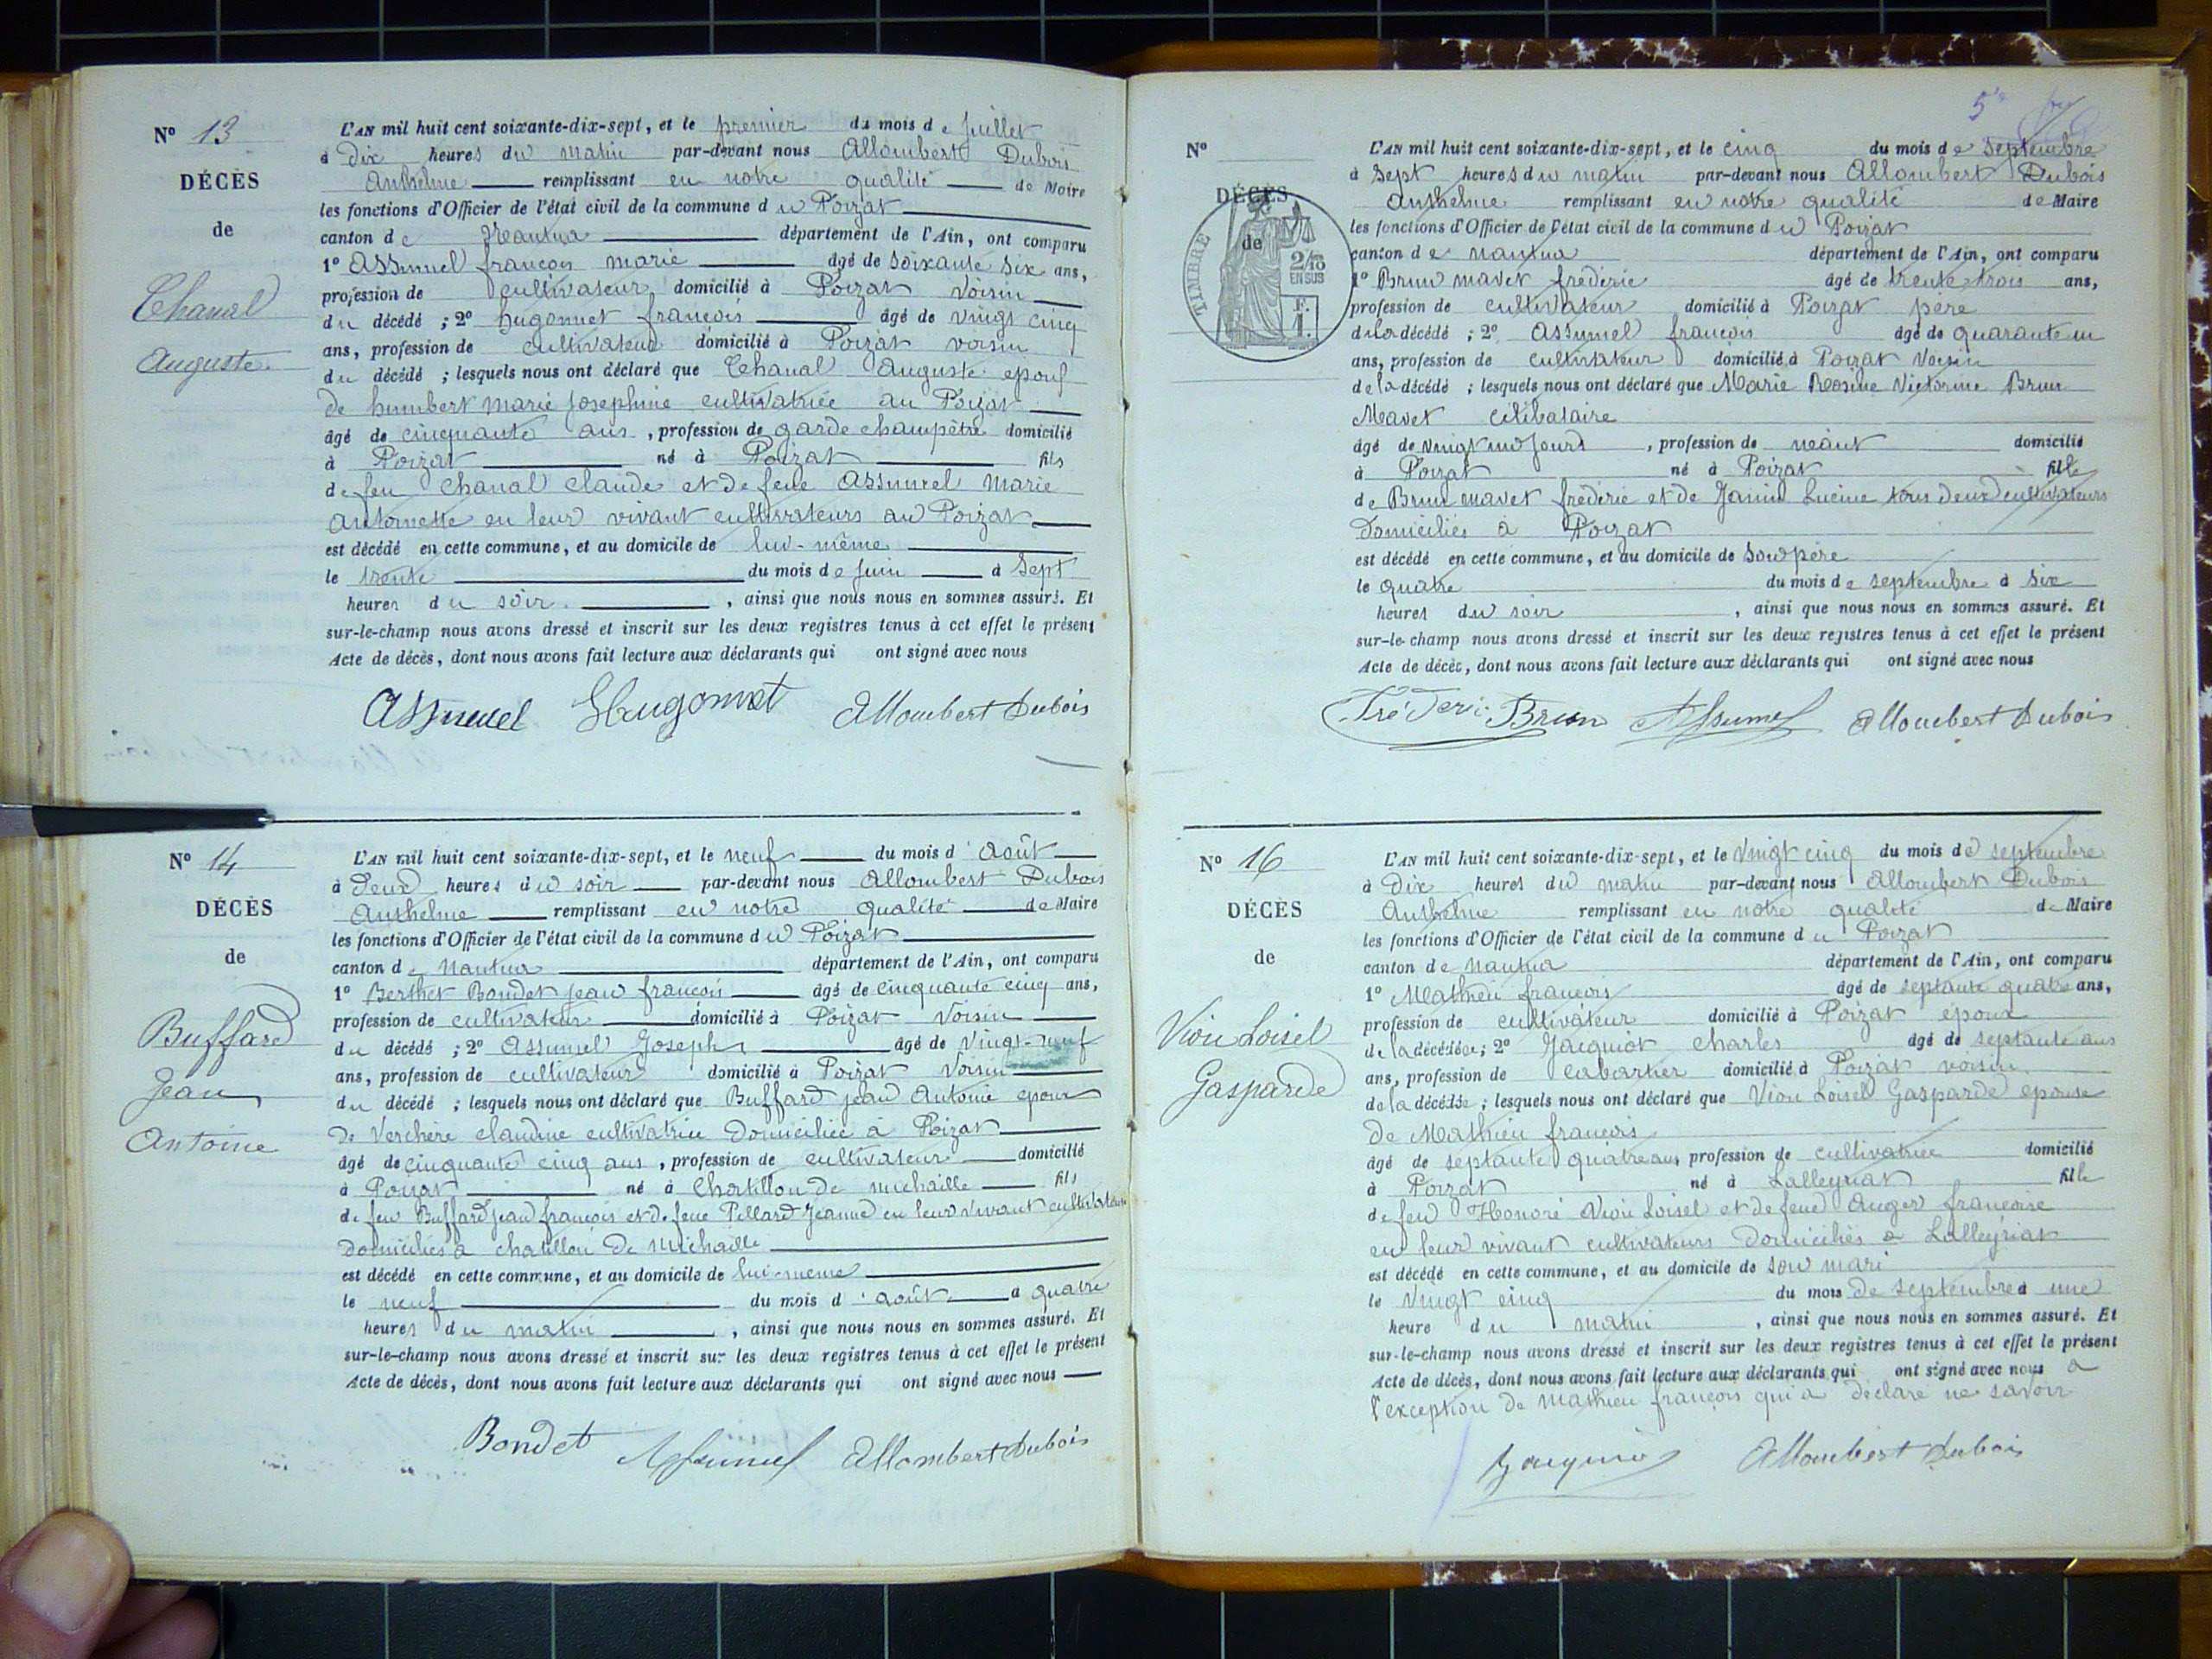 N° 13
DÉCÈS
de
Chanal
Auguste
L'AN mil huit cent soixante-dix-sept, et le premier du mois de Juillet
à Dix heures du matin par-devant nous Allombert Dubois
Anthelme remplissant en notre qualité de Maire
les fonctions d'Officier de l'état civil de la commune du Poizat
canton de Nantua département de l'Ain, ont comparu
1° Assumel françois marie âgé de soixante six ans,
profession de cultivateur domicilié à Poizat voisin
du décédé ; 2° hugonnet françois âgé de vingt cinq
ans, profession de cultivateur domicilié à Poizat voisin
du décédé ; lesquels nous ont déclaré que Chanal Auguste epoux
de humbert marie Josephine cultivatrice au Poizat
âgé de cinquante ans, profession de garde champêtre domicilié
à Poizat né à Poizat fils
de feu Chanal Claude et de feue Assumel Marie
Antoinette en leur vivant cultivateurs au Poizat
est décédé en cette commune, et au domicile de lui-même
le trente du mois de Juin à Sept
heures du soir, ainsi que nous nous en sommes assuré. Et
sur-le-champ nous avons dressé et inscrit sur les deux registres tenus à cet effet le présent
Acte de décès, dont nous avons fait lecture aux déclarants qui ont signé avec nous
Assumel Hugonnet Allombert Dubois
N° 14
DÉCÈS
de
Buffard
Jean
Antoine
L'AN mil huit cent soixante-dix-sept, et le neuf du mois d'Août
à Deux heures du soir par-devant nous Allombert Dubois
Anthelme remplissant en notre qualité de Maire
les fonctions d'Officier de l'état civil de la commune du Poizat
canton de Nantua département de l'Ain, ont comparu
1° Berthet Bondet jean françois âgé de cinquante cinq ans,
profession de cultivateur domicilié à Poizat Voisin
du décédé ; 2° Assumel Joseph âgé de vingt-neuf
ans, profession de cultivateur domicilié à Poizat Voisin
du décédé ; lesquels nous ont déclaré que Buffard jean Antoine epoux
de Verchère claudine cultivatrice domiciliée à Poizat
âgé de cinquante cinq ans, profession de cultivateur domicilié
à Poizat né à Chatillon de michaille fils
de feu Buffard jean françois et de feue Pillard Jeanne en leur vivant cultivateurs
domiciliés à chatillon de Michaille
est décédé en cette commune, et au domicile de lui-meme
le neuf du mois d'août à quatre
heures du matin, ainsi que nous nous en sommes assuré. Et
sur-le-champ nous avons dressé et inscrit sur les deux registres tenus à cet effet le présent
Acte de décès, dont nous avons fait lecture aux déclarants qui ont signé avec nous
Bondet Assumel Allombert Dubois
5e
N°
DÉCÈS
de
TIMBRE
2/10
EN SUS
F.
1.
L'AN mil huit cent soixante-dix-sept, et le cinq du mois de Septembre
à Sept heures du matin par-devant nous Allombert Dubois
Anthelme remplissant en notre qualité de Maire
les fonctions d'Officier de l'état civil de la commune du Poizat
canton de nantua département de l'Ain, ont comparu
1° Brun mavet frederic âgé de trente trois ans,
profession de cultivateur domicilié à Poizat père
de la décédé ; 2° Assumel françois âgé de quarante un
ans, profession de cultivateur domicilié à Poizat Voisin
de la décédé ; lesquels nous ont déclaré que Marie Rosine Victorine Brun
Mavet célibataire
âgé de vingt un Jours, profession de néant domicilié
à Poizat né à Poizat fille
de Brun mavet frederic et de Janin Lucine tous deux cultivateurs
Domiciliés à Poizat
est décédé en cette commune, et au domicile de son père
le quatre du mois de septembre à six
heures du soir, ainsi que nous nous en sommes assuré. Et
sur-le-champ nous avons dressé et inscrit sur les deux registres tenus à cet effet le présent
Acte de décès, dont nous avons fait lecture aux déclarants qui ont signé avec nous
Fréderi Brun Assumel Allombert Dubois
N° 16
DÉCÈS
de
Viou Loisel
Gasparde
L'AN mil huit cent soixante-dix-sept, et le Vingt cinq du mois de septembre
à Dix heures du matin par-devant nous Allombert Dubois
Anthelme remplissant en notre qualité de Maire
les fonctions d'Officier de l'état civil de la commune du Poizat
canton de Nantua département de l'Ain, ont comparu
1° Mathieu françois âgé de septante quatre ans,
profession de cultivateur domicilié à Poizat époux
de la décédée ; 2° Jacquiot Charles âgé de septante ans
ans, profession de cabartier domicilié à Poizat voisin
de la décédée ; lesquels nous ont déclaré que Viou Loisel Gasparde epouse
de Mathieu françois
âgé de septante quatre ans, profession de cultivatrice domicilié
à Poizat né à Lalleyriat fille
de feu Honoré Viou Loisel et de feue Auger françoise
en leur vivant cultivateurs domiciliés à Lalleyriat
est décédé en cette commune, et au domicile de son mari
le Vingt cinq du mois de septembre à une
heure du matin, ainsi que nous nous en sommes assuré. Et
sur-le-champ nous avons dressé et inscrit sur les deux registres tenus à cet effet le présent
Acte de décès, dont nous avons fait lecture aux déclarants qui ont signé avec nous à
l'exception de Mathieu françois qui a déclaré ne savoir
Allombert Dubois